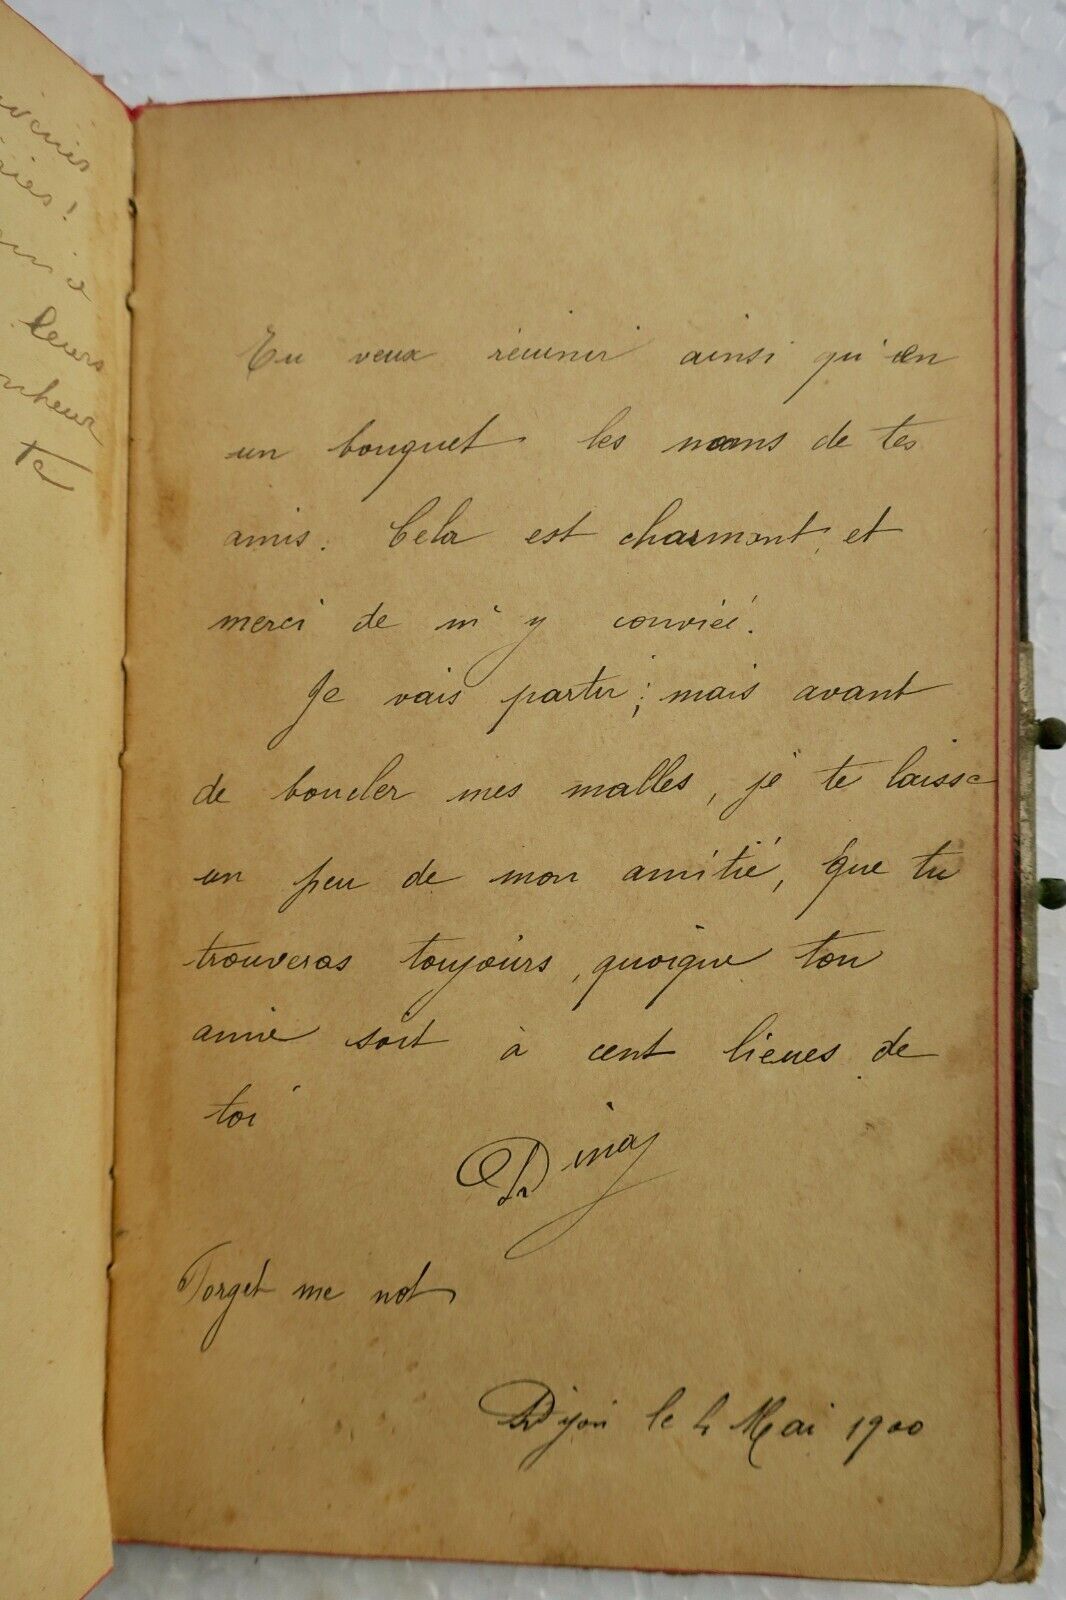 leurs
Te
Tu veux réunir ainsi qu'en
un bouquet les noms de tes
amis. Cela est charmant, et
merci de m'y conviée.
Je vais partir ; mais avant
de boucler mes malles, je te laisse
un peu de mon amitié, que tu
trouveras toujours, quoique ton
amie soit à cent lieues de
toi
Dina
Forget me not
Dijon le 4 Mai 1900